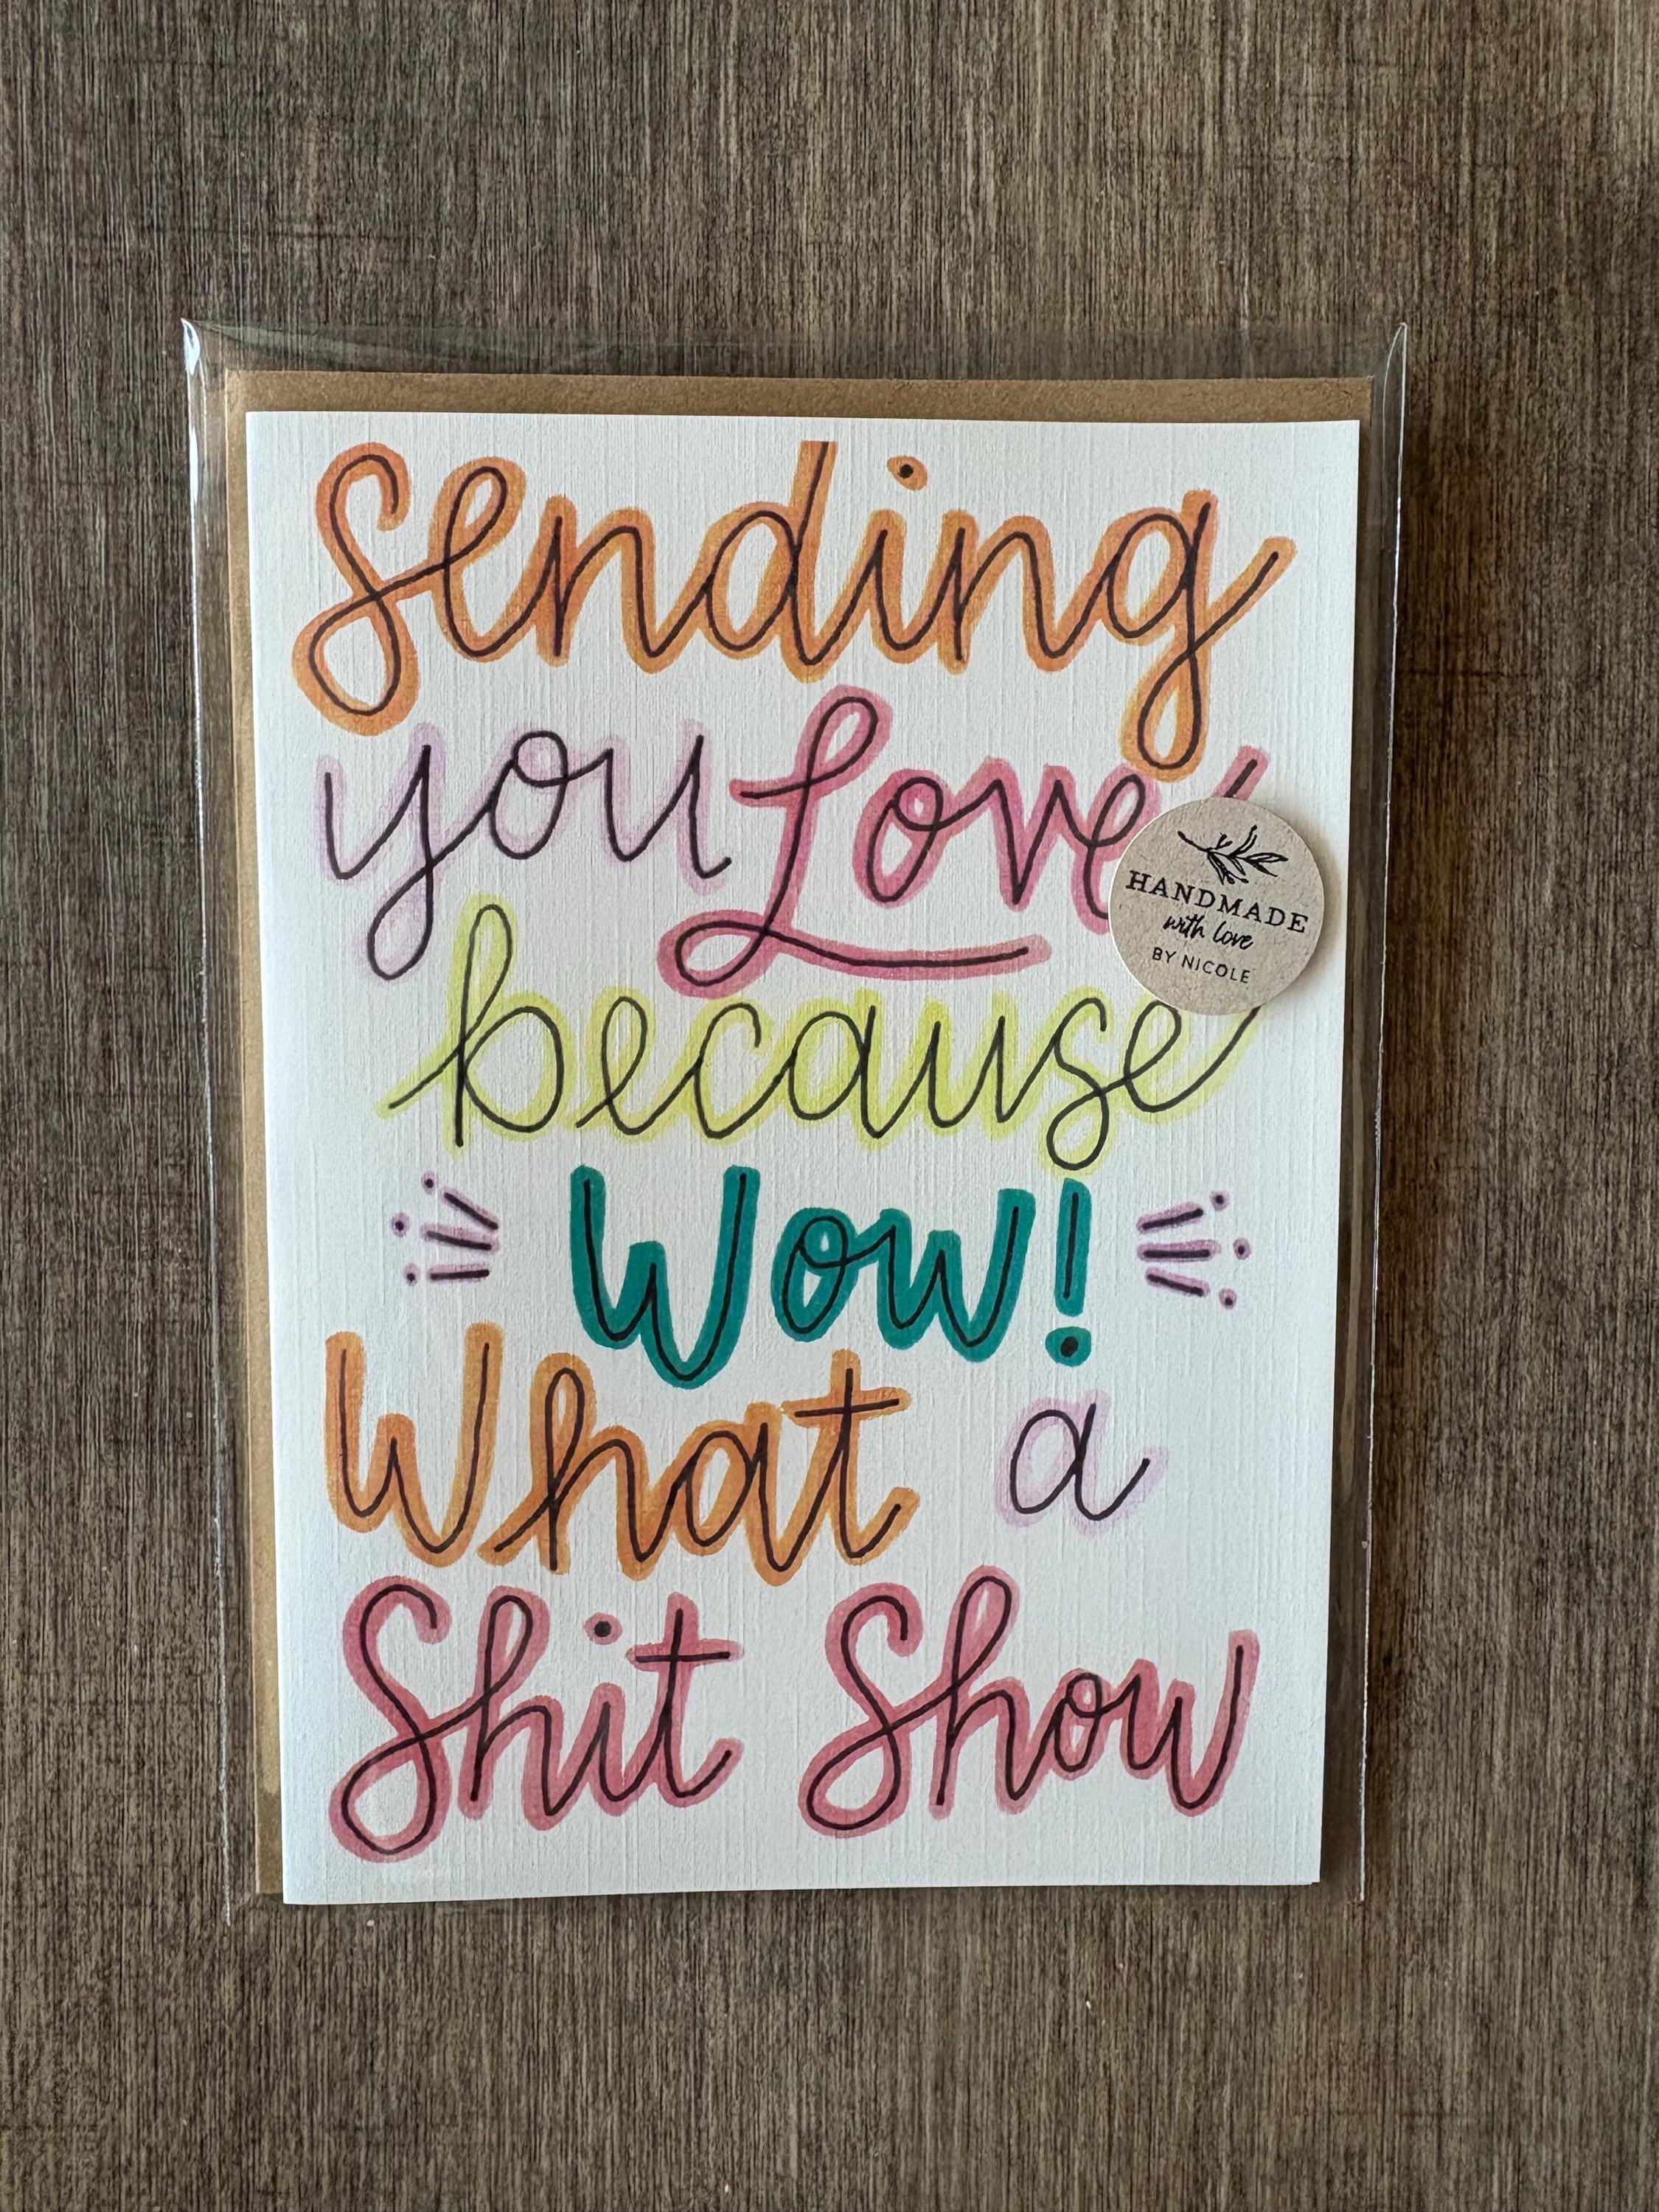 Sending
you Love
HANDMADE
with love
BY NICOLE
because
Wow!
What a
Shit Show